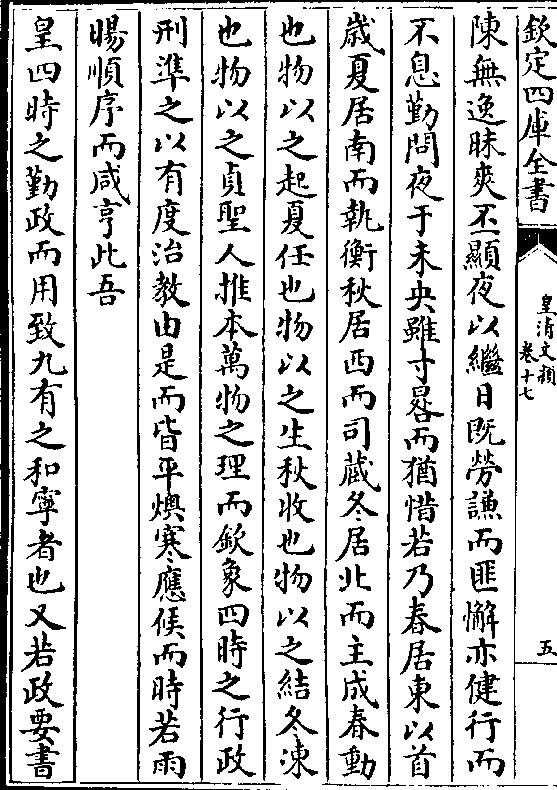 欽定四庫全書
皇清文穎
卷十七
五
陳無逸昧爽丕顯夜以繼日既勞謙而匪懈亦健行而
不息勤問夜于未央雖寸晷而猶惜若乃春居東以首
歲夏居南而執衡秋居西而司蔵冬居北而主成春動
也物以之起夏任也物以之生秋收也物以之結冬凍
也物以之貞聖人推本萬物之理而欽象四時之行政
刑準之以有度治教由是而皆平燠寒應候而時若雨
暘順序而咸亨此吾
皇四時之勤政而用致九有之和寧者也又若政要書